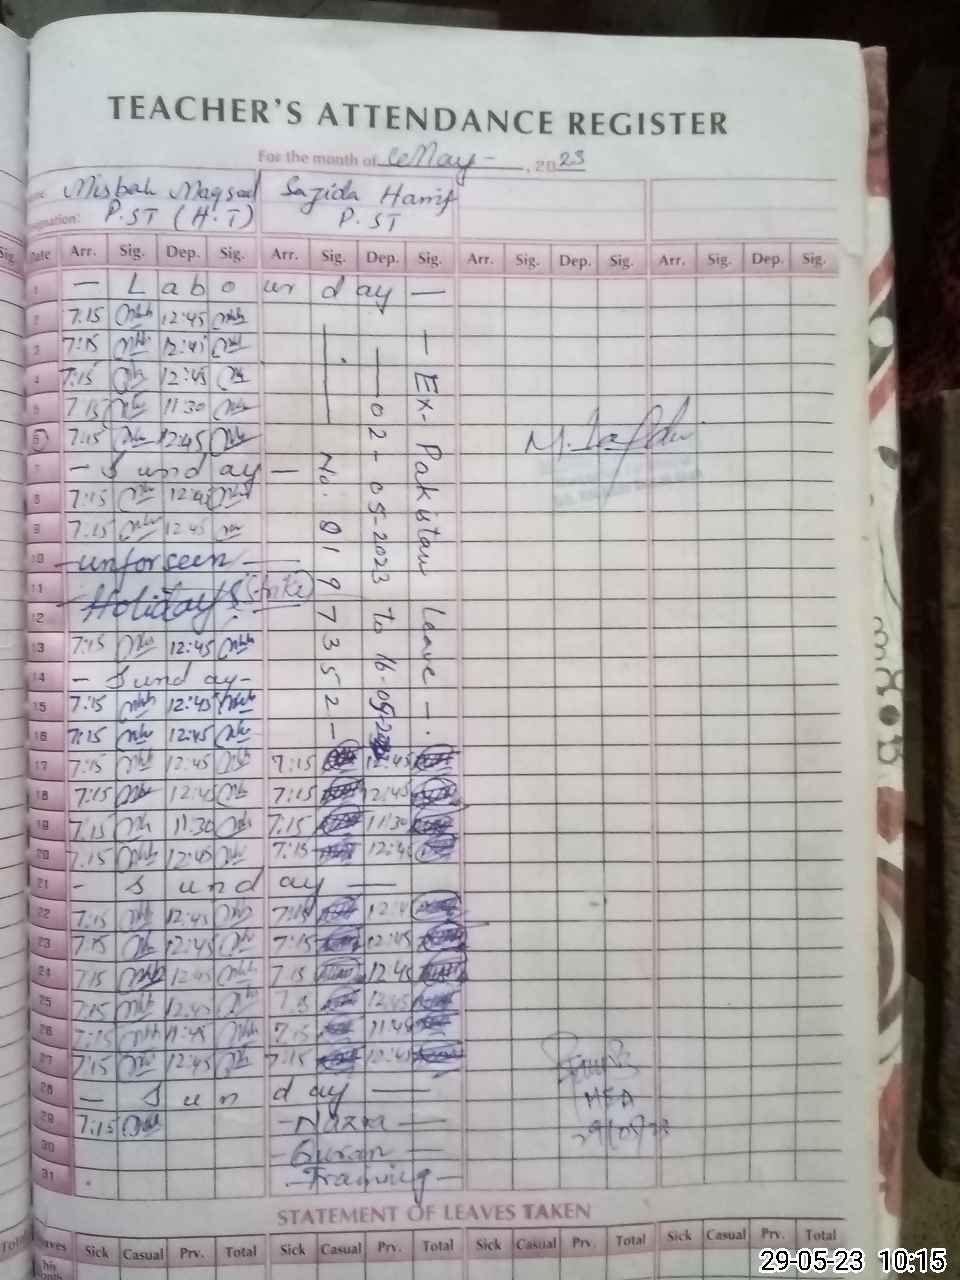 TEACHER'S ATTENDANCE REGISTER
For the month of May - , 2023
Misbah Maqsood Sajida Hanif
P.ST (H.T) P.ST
Date Arr. Sig. Dep. Sig. Arr. Sig. Dep. Sig. Arr. Sig. Dep. Sig. Arr. Sig. Dep. Sig.
1 - Labour day -
2 7:15 12:45
3 7:15 12:45
4 7:15 12:45
5 7:15 11:30
6 7:15 12:45
7 - Sunday -
8 7:15 12:45
9 7:15 12:45
10 - unforseen -
11 Holidays (Strike)
12
13 7:15 12:45
14 - Sunday -
15 7:15 12:45
16 7:15 12:45
- Ex-Pakistan Leave -.
02-05-2023 To 16-05-
No. 0197352 -
17 7:15 12:45 7:15 12:45
18 7:15 12:45 7:15 12:45
19 7:15 11:30 7:15 11:30
20 7:15 12:45 7:15 12:45
21 - Sunday -
22 7:15 12:45 7:15 12:45
23 7:15 12:45 7:15 12:45
24 7:15 12:45 7:15 12:45
25 7:15 12:45 7:15 12:45
26 7:15 11:45 7:15 11:45
27 7:15 12:45 7:15 12:45
28 - Sunday -
29 7:15 - Nazra -
30 - Quran -
31 - Training -
29/05/23
STATEMENT OF LEAVES TAKEN
Sick Casual Prv. Total Sick Casual Prv. Total Sick Casual Prv. Total Sick Casual Prv. Total
29-05-23 10:15